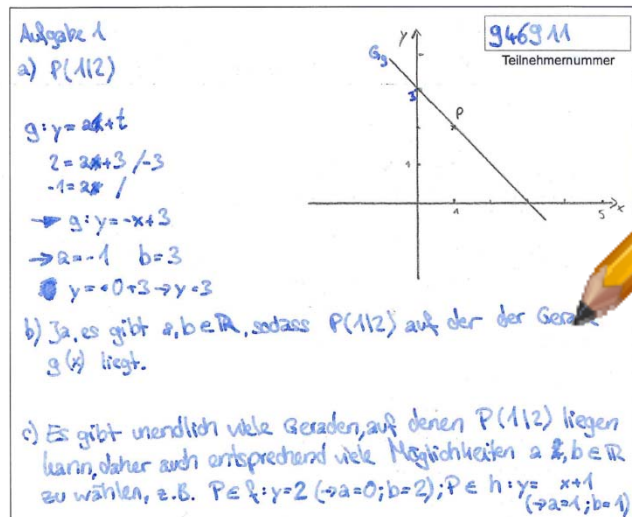 Aufgabe 1
a) P(1|2)
946911
Teilnehmernummer
y
Gg
3
P
1
1
5
x
g: y = ax+t
2 = a+3 /-3
-1 = a /
→ g: y = -x+3
→ a = -1 b = 3
y = -0+3 → y = 3
b) Ja, es gibt a, b ∈ ℝ, sodass P(1|2) auf der der
g(x) liegt.
c) Es gibt unendlich viele Geraden, auf denen P(1|2) liegen
kann, daher auch entsprechend viele Möglichkeiten a, b ∈ ℝ
zu wählen, z.B. P ∈ f: y=2 (→a=0; b=2); P ∈ h: y= x+1
(→a=1; b=1)